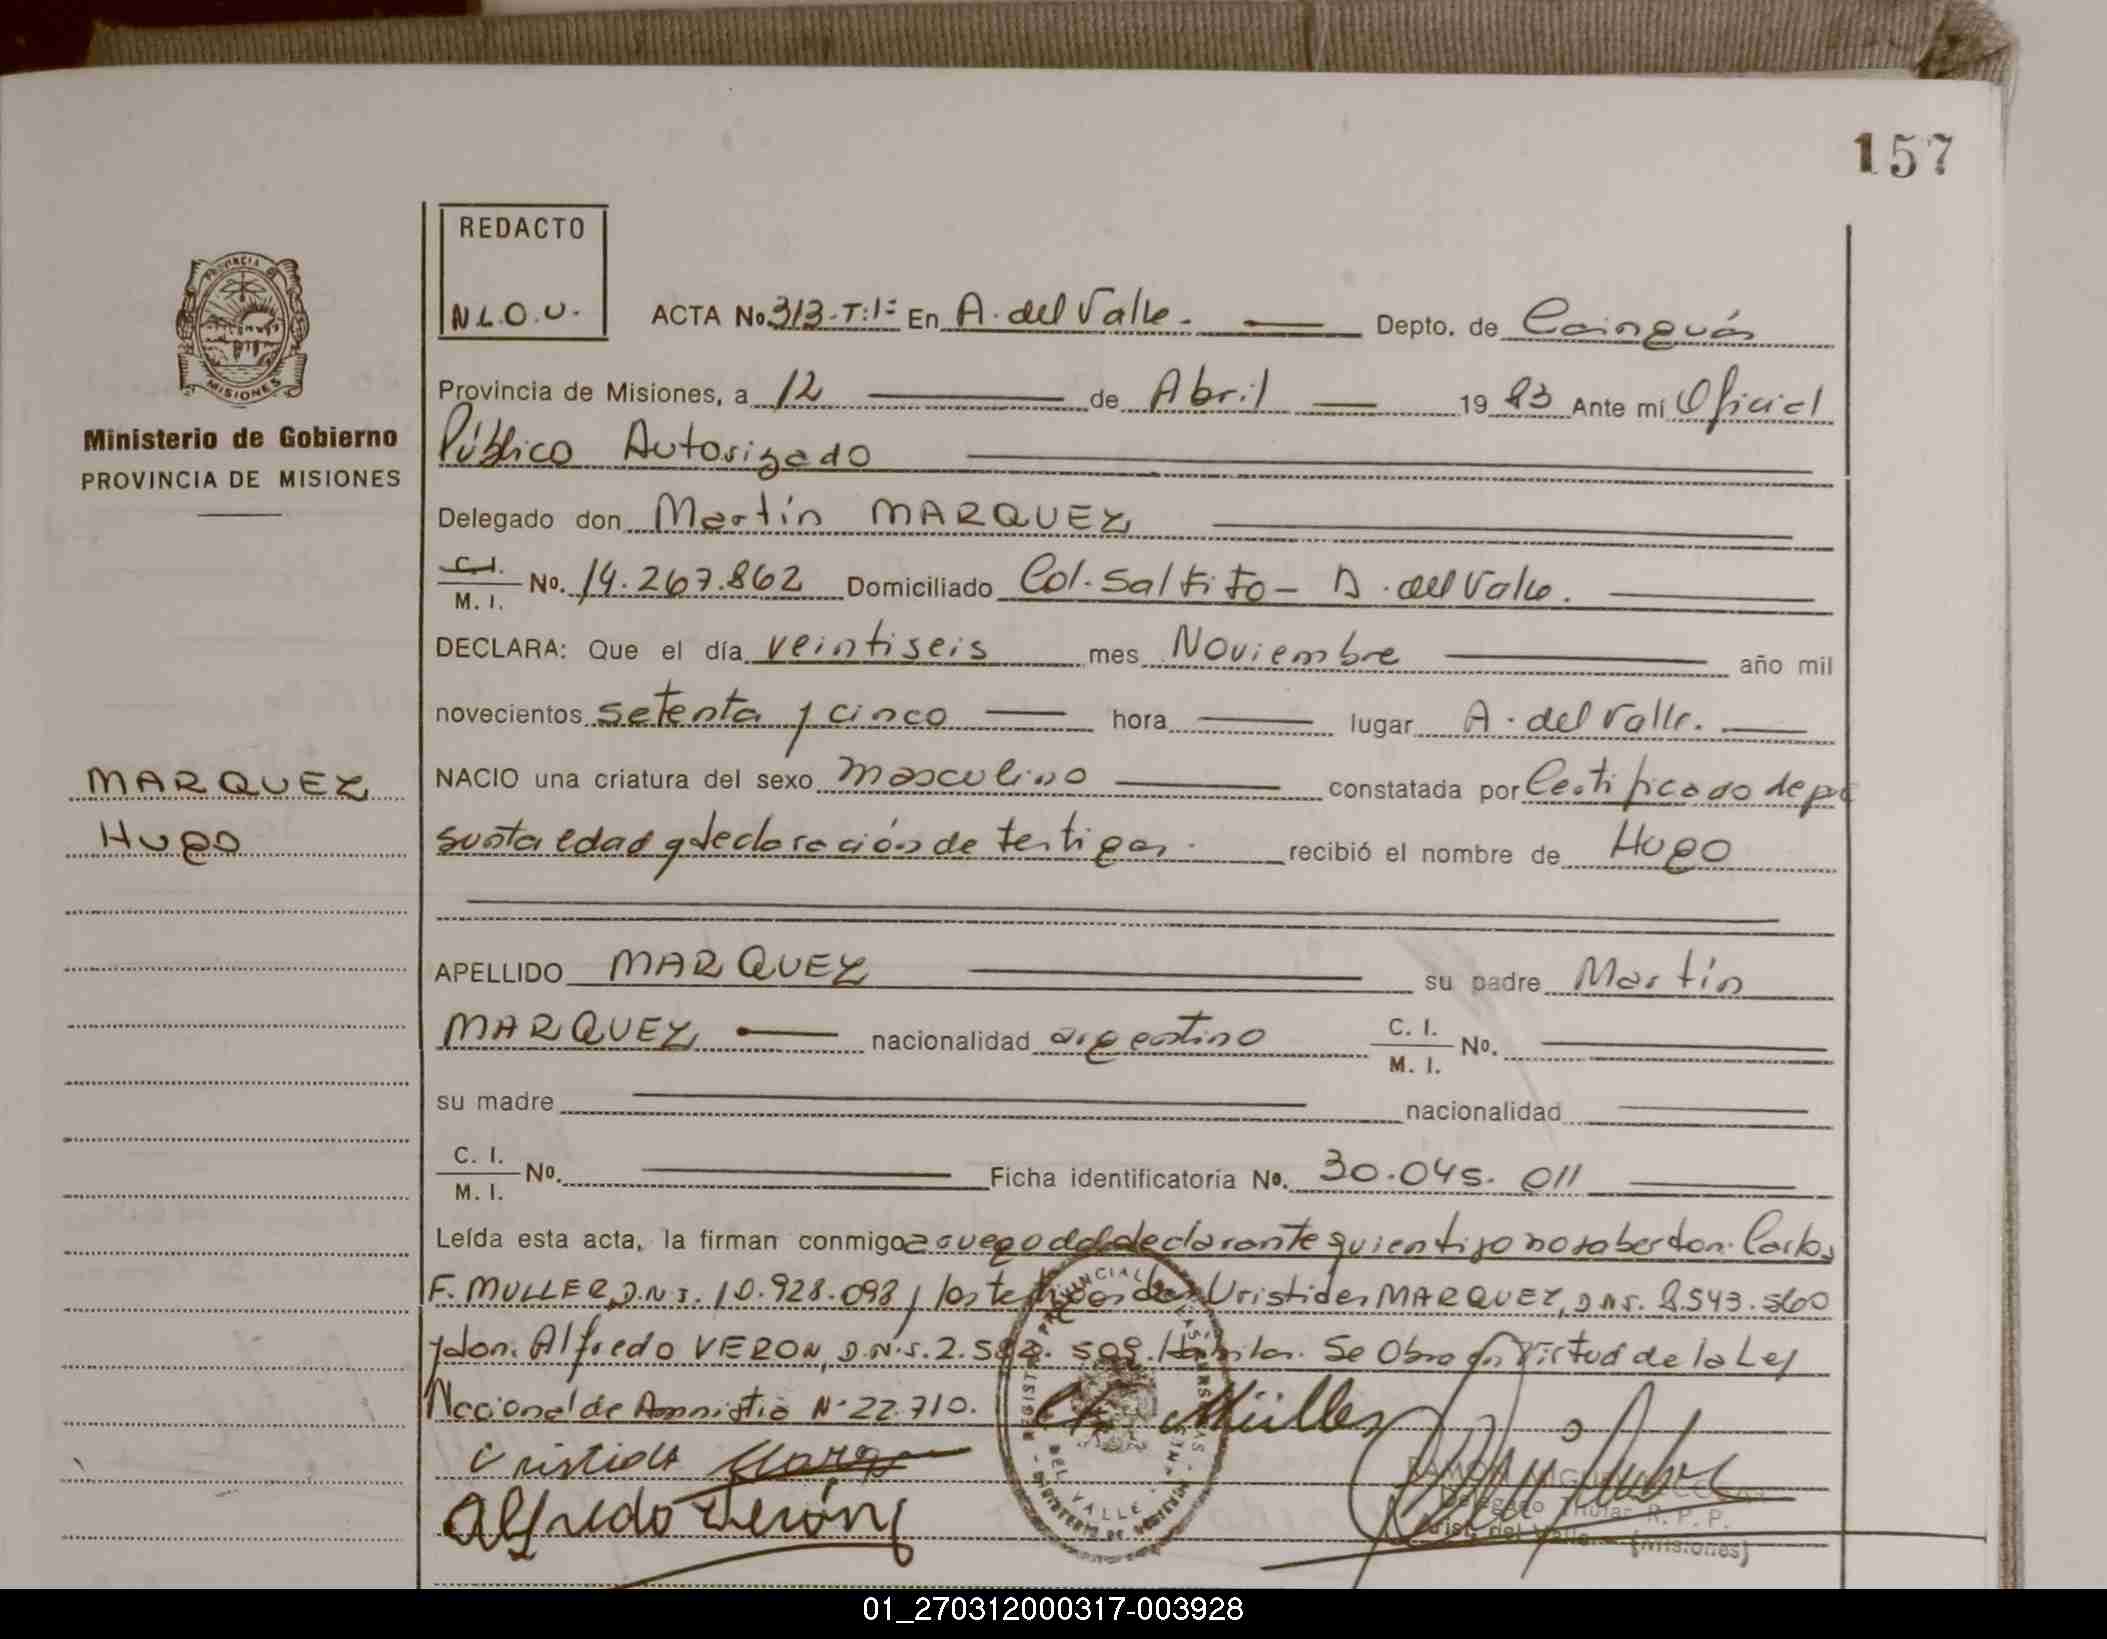 157
REDACTO
N.L.O.U.
PROVINCIA DE
MISIONES
Ministerio de Gobierno
PROVINCIA DE MISIONES
ACTA No 313-T:1= En A. del Valle. Depto. de Cainguás
Provincia de Misiones, a 12 de Abril 1983 Ante mí Oficial
Público Autorizado
Delegado don Martín MARQUEZ
C. I. M. I. No. 14.267.862 Domiciliado Col. Saltito - A. del Valle.
DECLARA: Que el día veintiseis mes Noviembre año mil
novecientos setenta y cinco hora lugar A. del Valle.
MARQUEZ
Hugo
NACIO una criatura del sexo masculino constatada por Certificado de pre
sunta edad y declaración de testigos. recibió el nombre de Hugo
APELLIDO MARQUEZ su padre Martín
MARQUEZ nacionalidad argentino C. I. M. I. No.
su madre nacionalidad
C. I. M. I. No. Ficha identificatoria No. 30.045.011
Leída esta acta, la firman conmigo a ruego del declarante quien dijo no saber don: Carlos
F. MULLER, D.N.I. 10.928.098 y los testigos don Uristides MARQUEZ, D.N.I. 8.543.560
y don: Alfredo VERON, D.N.I. Hábiles. Se Obra en Virtud de la Ley
Nacional de Amnistía Nº 22.710.
Müller
Uristides
Alfredo Verón
DEL VALLE
Delegado Titular R. P. P.
Arist. del Valle (Misiones)
01_270312000317-003928